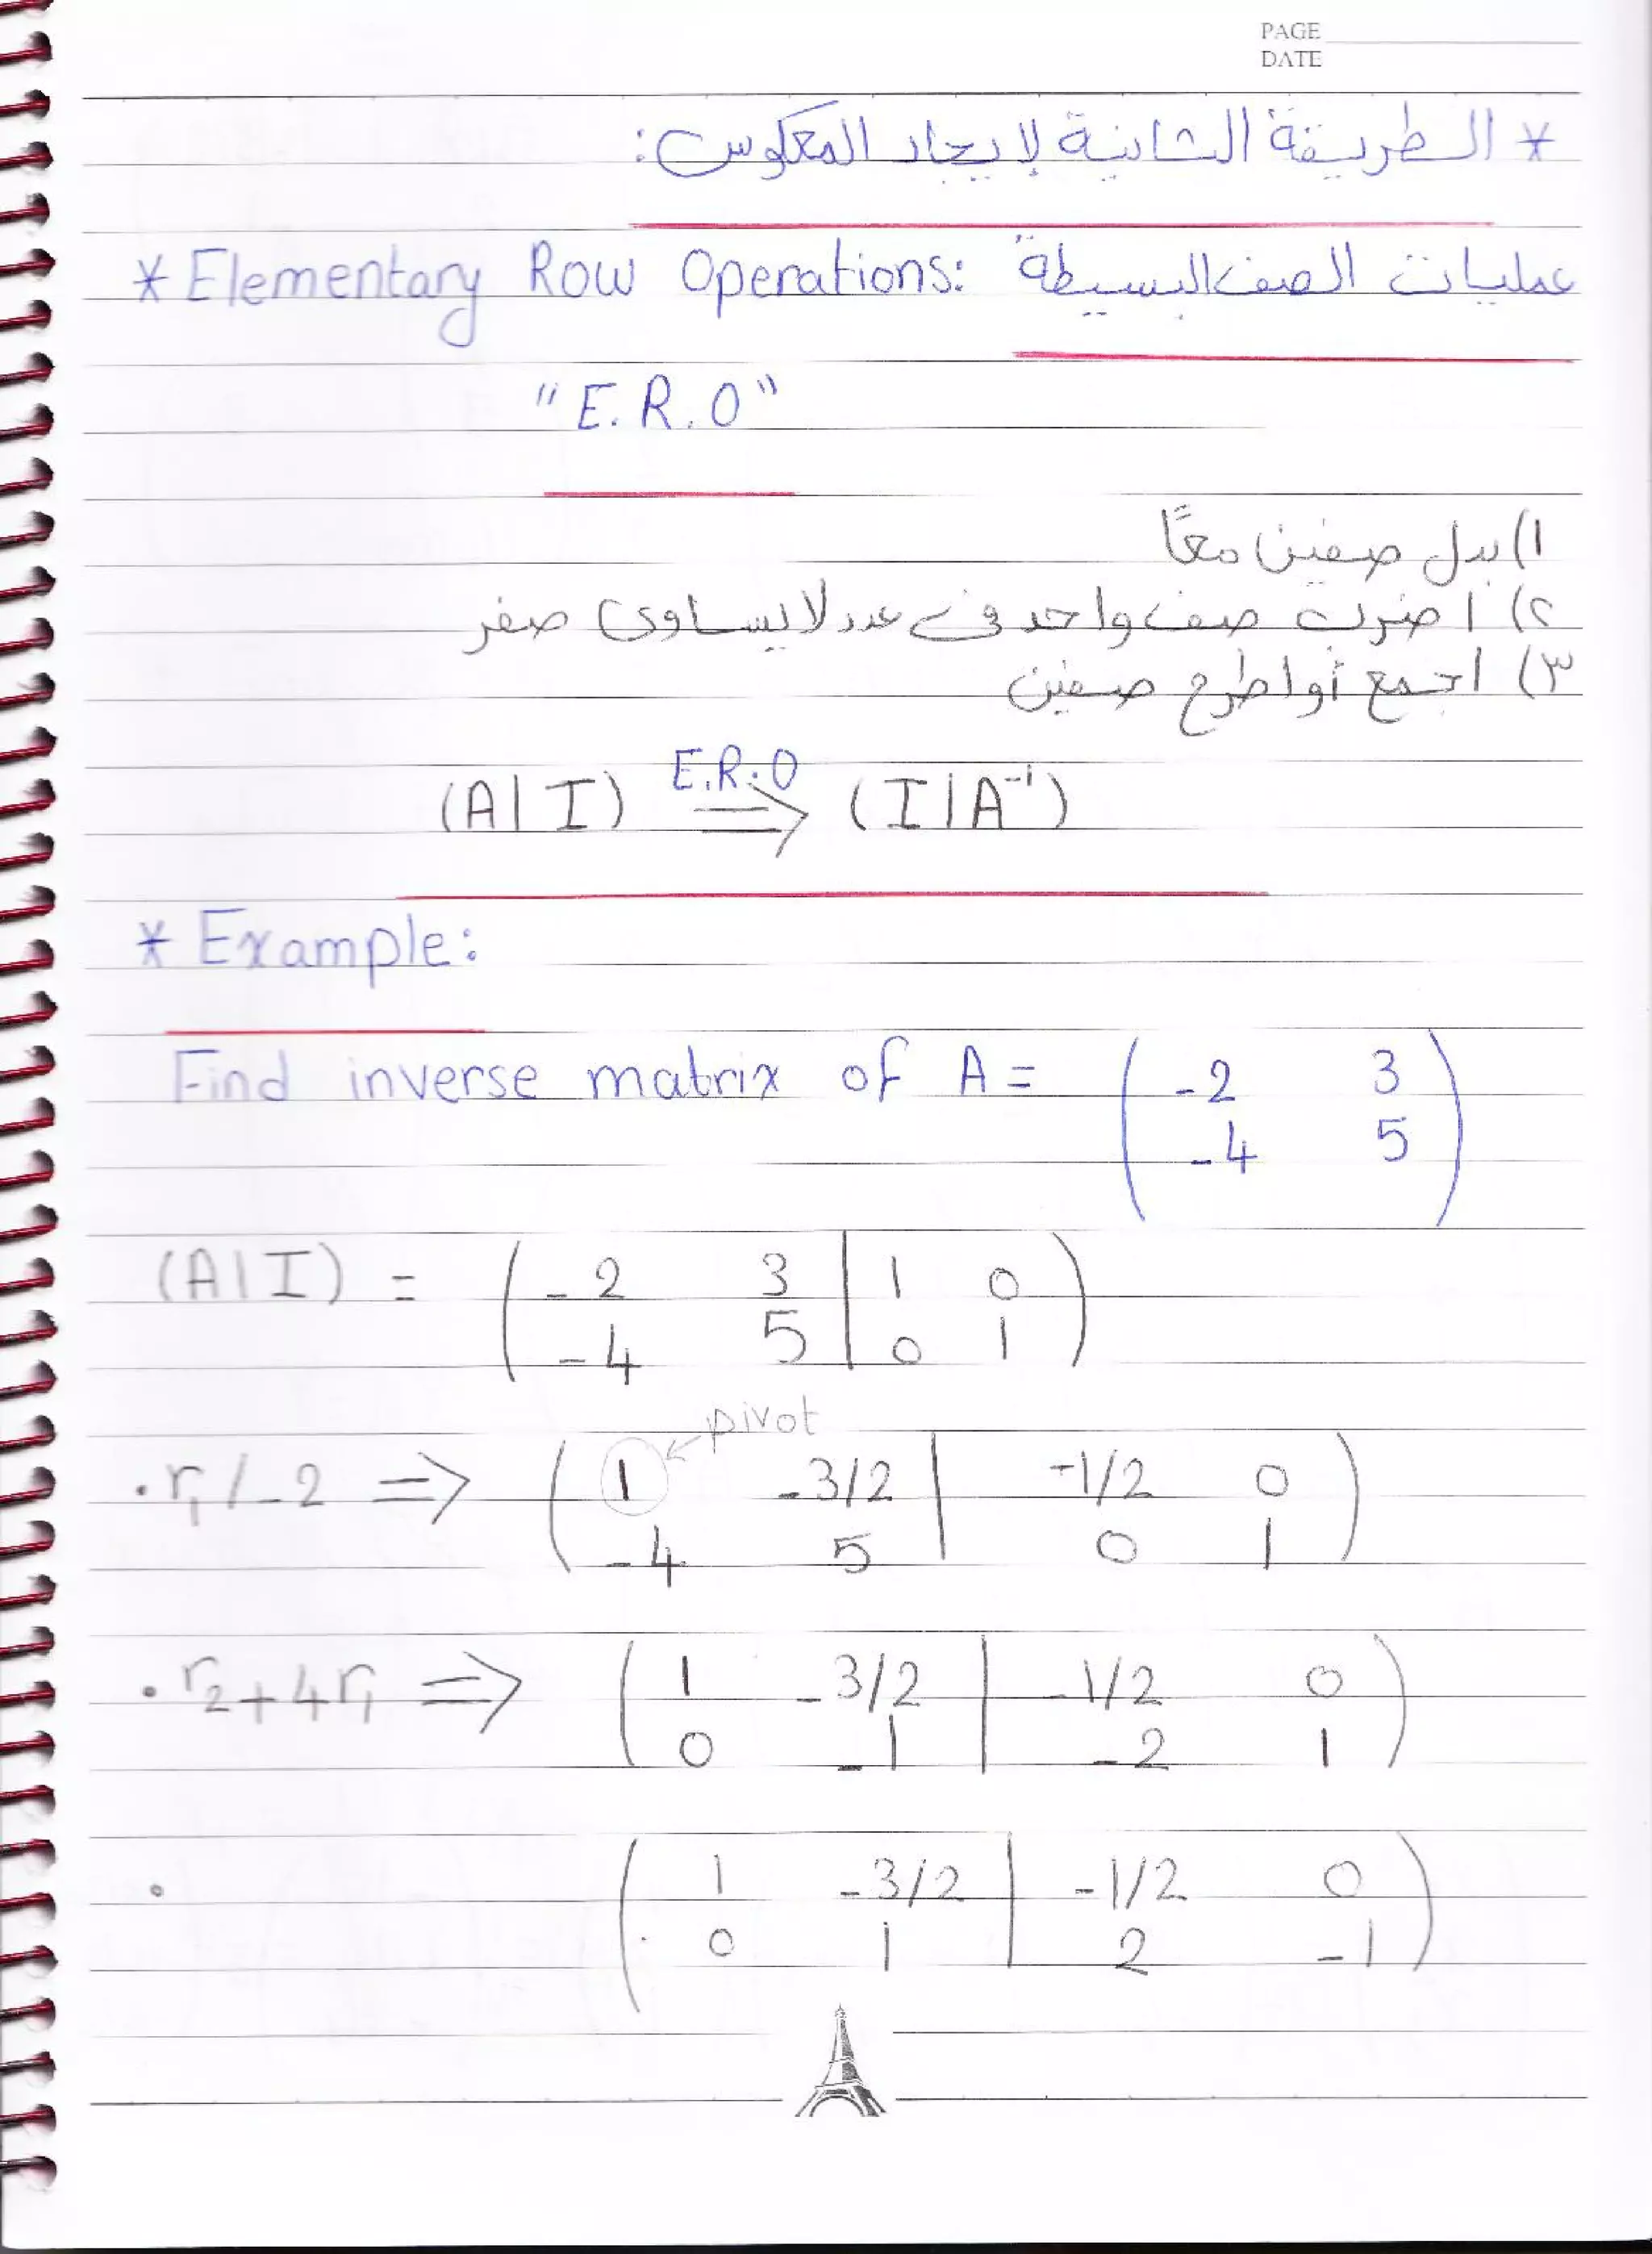 PAGE
DATE
* الطريقة الثانية لإيجاد المعكوس:
* Elementary Row Operations: عمليات الصف البسيطة
"E.R.O"
١) بدل صفين معًا
٢) اضرب صف واحد في عدد لا يساوى صفر
٣) اجمع أو اطرح صفين
(A|I) E.R.O ⇒ (I|A⁻¹)
* Example:
Find inverse matrix of A = ( -2 3
-4 5 )
(A|I) = ( -2 3 | 1 0
-4 5 | 0 1 )
pivot
• r₁/-2 ⇒ ( 1 -3/2 | -1/2 0
-4 5 | 0 1 )
• r₂+4r₁ ⇒ ( 1 -3/2 | -1/2 0
0 -1 | -2 1 )
• ( 1 -3/2 | -1/2 0
0 1 | 2 -1 )